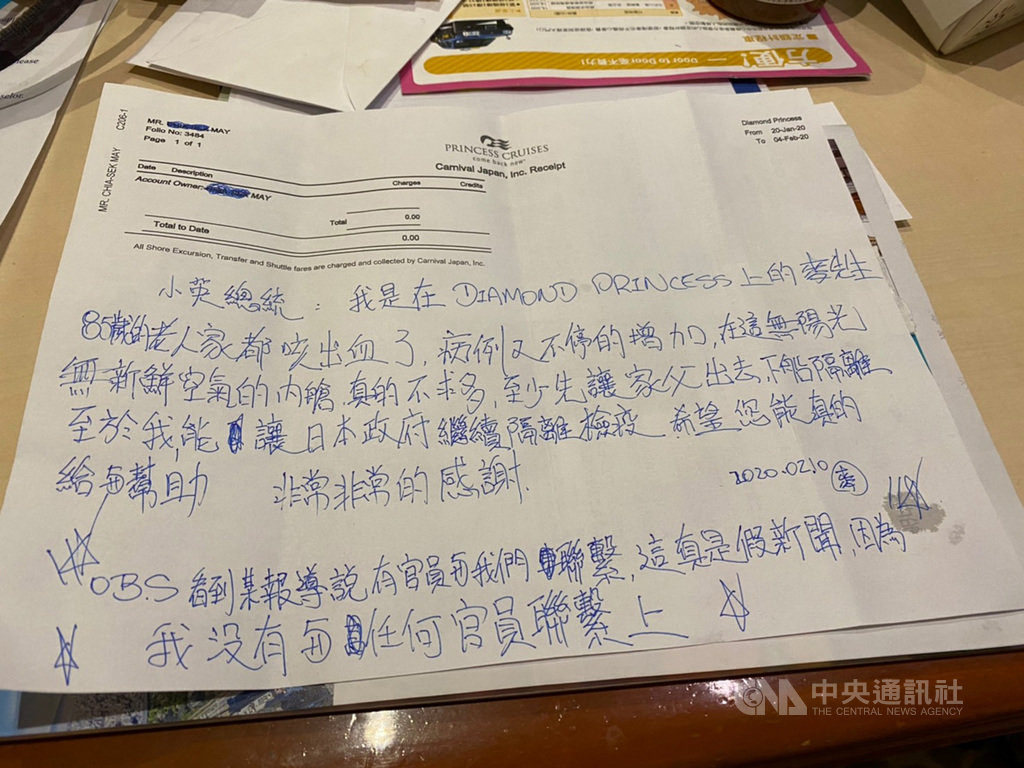 please
selor.
方便! — Door to Door毫不費力!
MR. CHIA-SEK MAY C206-1
MR. MAY
Folio No: 3484
Page 1 of 1
PRINCESS CRUISES
come back new
Carnival Japan, Inc. Receipt
Diamond Princess
From 20-Jan-20
To 04-Feb-20
Date Description Charges Credits
Account Owner: MAY
Total 0.00
Total to Date 0.00
All Shore Excursion, Transfer and Shuttle fares are charged and collected by Carnival Japan, Inc.
小英總統: 我是在 DIAMOND PRINCESS 上的麥先生
85歲的老人家都咳出血了,病例又不停的增加,在這無陽光
無新鮮空氣的內艙 真的不求多,至少先讓家父出去,下船隔離
至於我,能讓日本政府繼續隔離檢疫 希望您能真的
給予幫助 非常非常的感謝.
2020.0210 麥
OB.S 看到某報導說有官員與我們聯繫,這真是假新聞,因為
我没有與任何官員聯繫上
中央通訊社
THE CENTRAL NEWS AGENCY